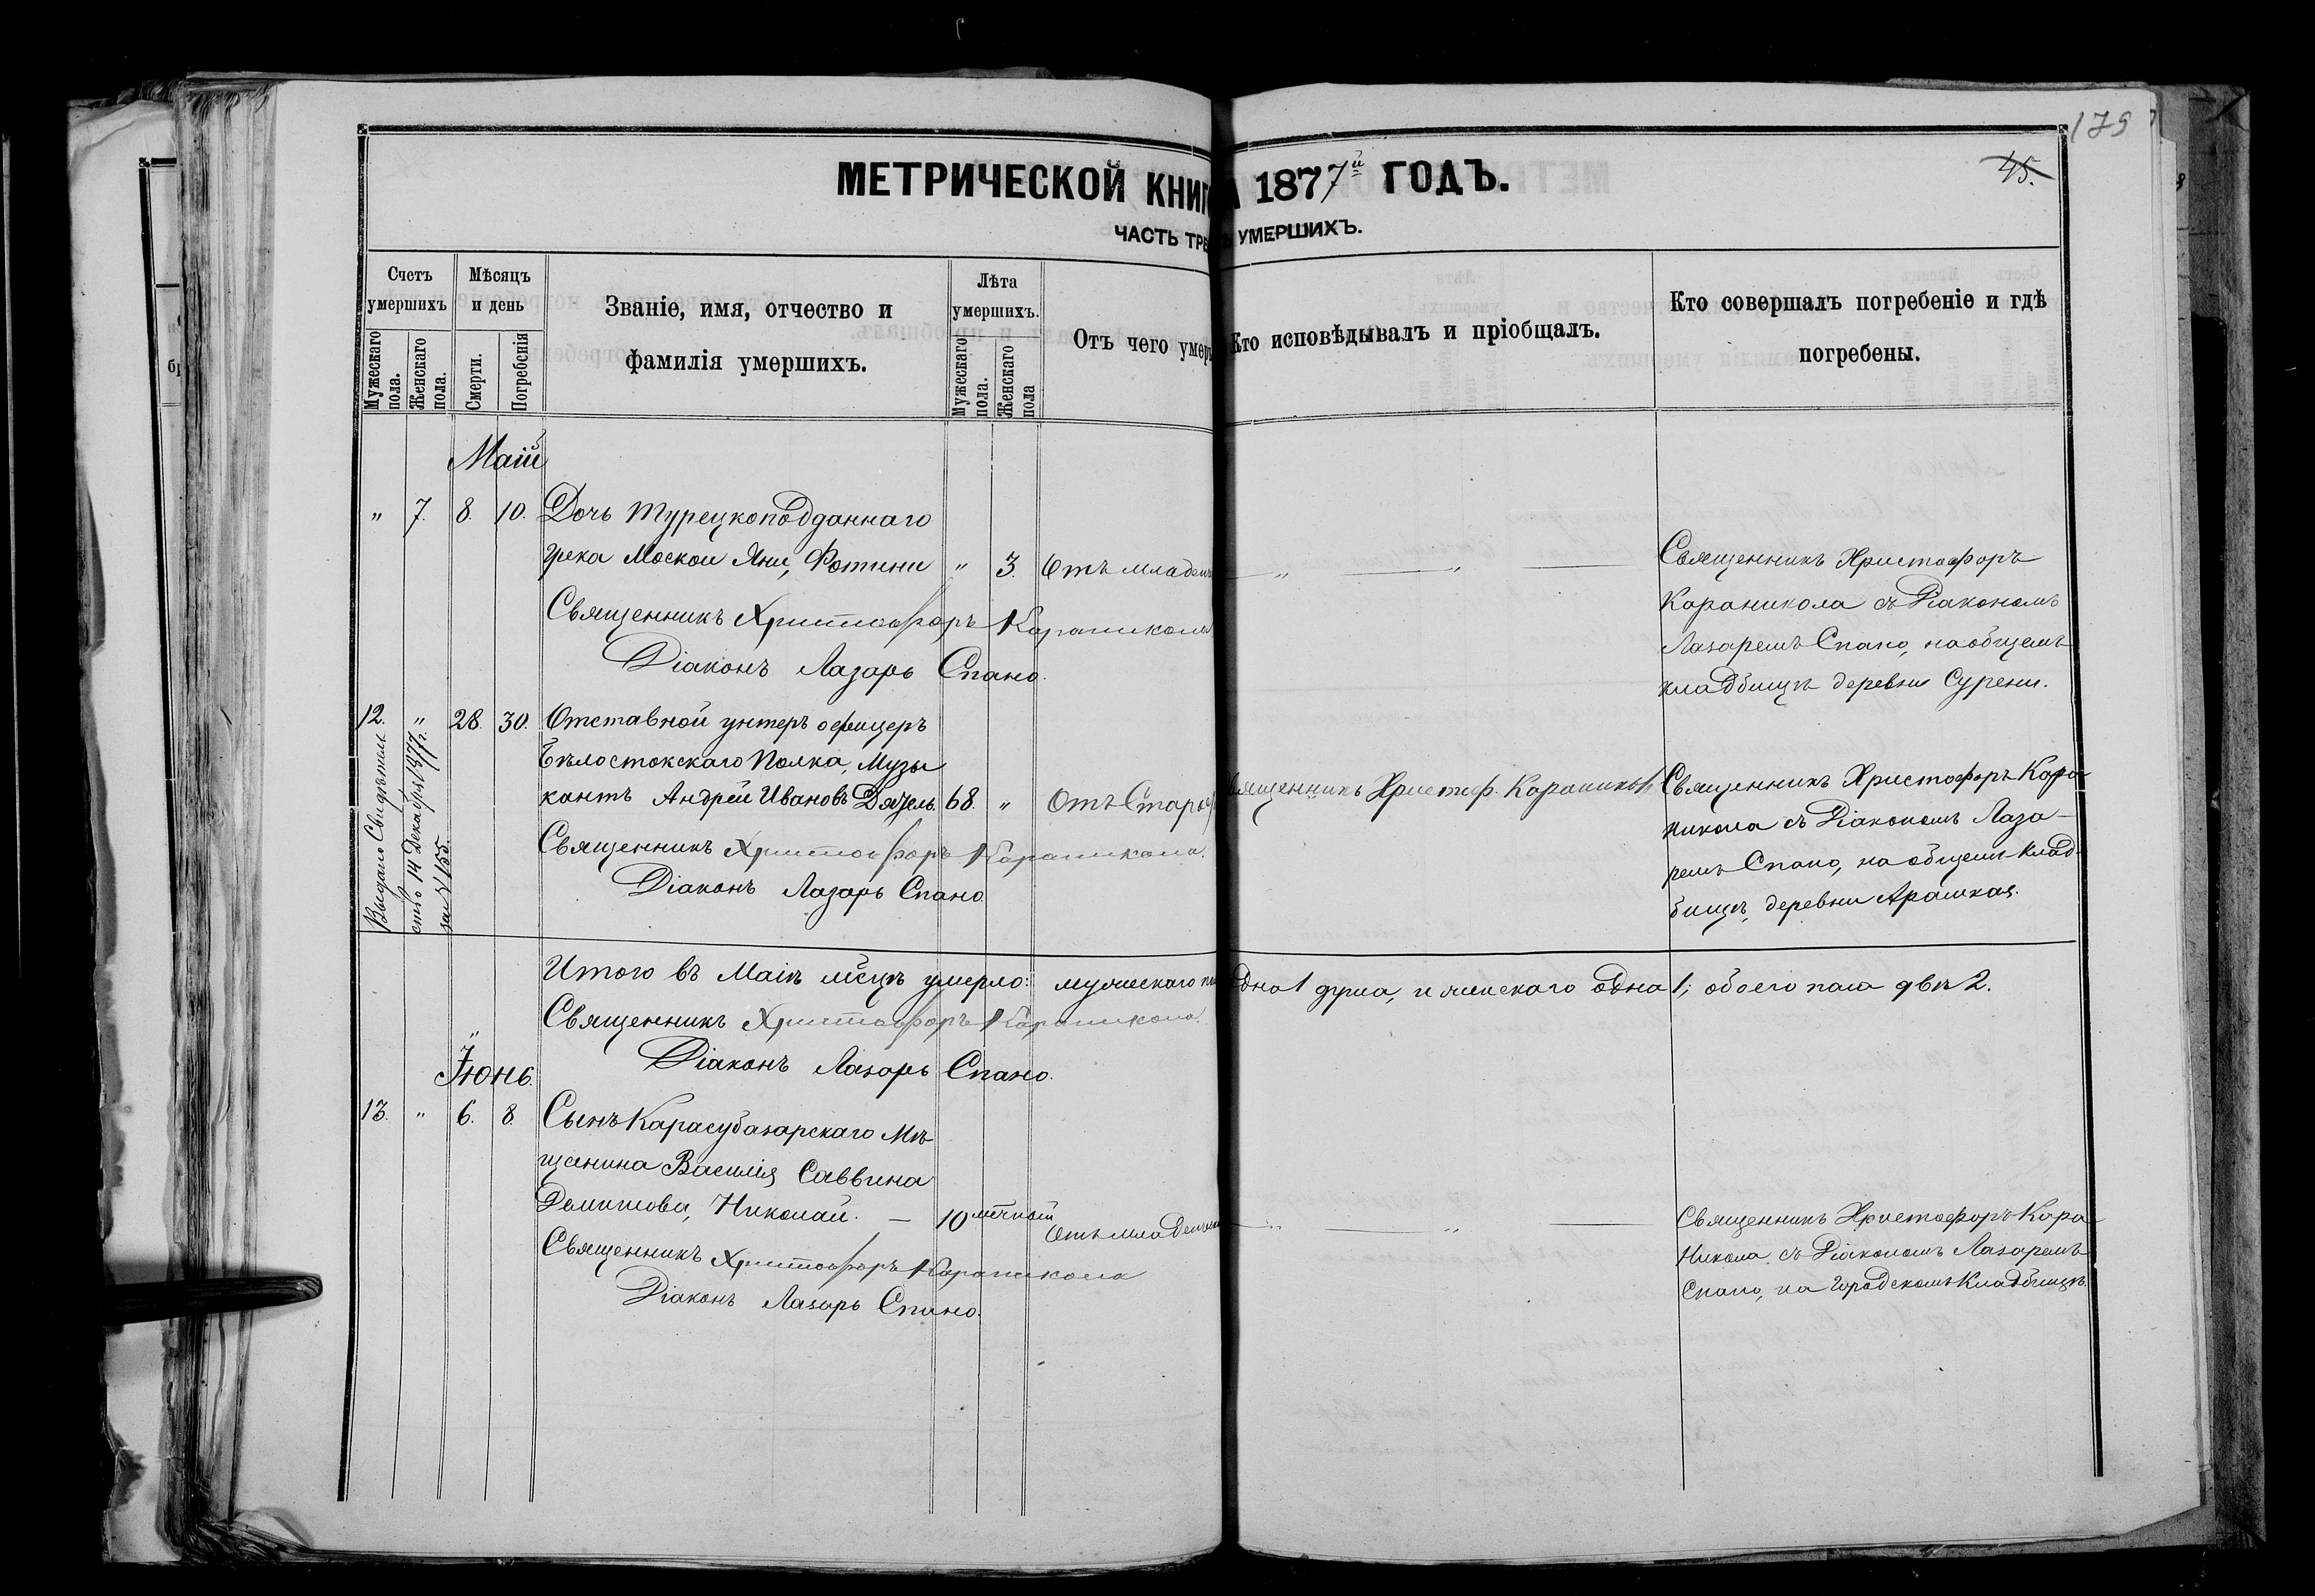 179
45.
МЕТРИЧЕСКОЙ КНИГ 1877й ГОДЪ.
ЧАСТЬ ТРЕ УМЕРШИХЪ.
Счетъ умершихъ
Мужескаго пола.
Женскаго пола.
Мѣсяцъ и день
Смерти.
Погребенія
Званіе, имя, отчество и
фамилія умершихъ.
Лѣта умершихъ.
Мужескаго пола.
Женскаго пола
Отъ чего умер
Кто исповѣдывалъ и пріобщалъ.
Кто совершалъ погребеніе и гдѣ
погребены.
Маій
" 7. 8. 10. Дочь Турецкоподданнаго
грека Москои Яни, Фотини " 3. Отъ младен " "
Священникъ Христофоръ Караникола
Діаконъ Лазарь Спано.
Священникъ Христофоръ
Караникола съ Діакономъ
Лазаремъ Спано, на общемъ
кладбищѣ деревни Сурени.
12. " 28. 30. Отставной унтеръ офицеръ
Бѣлостокскаго Полка, Музы
кантъ Андрей Ивановъ 68. " Отъ Старос вященникъ Христоф. Караникола
Священникъ Христофоръ Караникола.
Діаконъ Лазарь Спано
Выдано Свидѣтель
ство 14 Декабря 1877 г.
за № 155.
Священникъ Христофоръ Кара-
никола съ Діакономъ Лаза-
ремъ Спано, на общемъ клад-
бищѣ, деревни
Итого въ Маіѣ м̃сцѣ умерло: мужескаго по одна 1 душа, и женскаго одна 1; обоего пола двѣ 2.
Священникъ Христофоръ Караникола.
Діаконъ Лазарь Спано.
Іюнь.
13. " 6. 8. Сынъ Карасубазарскаго Мѣ
щанина Василія Саввина
Николай. — 10 Отъ младенч " "
Священникъ Христофоръ Караникола
Діаконъ Лазарь Спано.
Священникъ Христофоръ Кара-
никола съ Діакономъ Лазаремъ
Спано, на Городскомъ Кладбищѣ